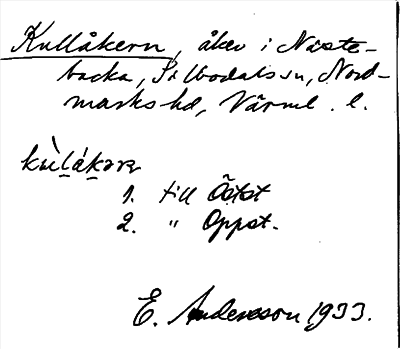 Kullåkern, åker i Näste-
backa, Silbodals sn, Nord-
marks hd, Värml. l.
kùlåkαrn
1. till Östst
2. " Oppst.
E. Andersson 1933.